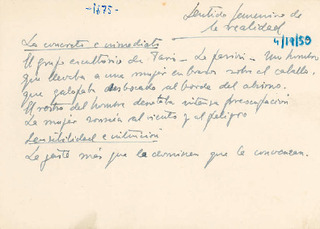 -1675-
Sentido femenino de
la realidad
4/19/59
Lo concreto e inmediato
El grupo escultórico de París - La pasión - Un hombre
que llevaba a una mujer en brazos sobre el caballo,
que galopaba desbocado al borde del abismo.
El rostro del hombre denotaba intensa preocupación
La mujer sonreía al viento y al peligro
Sensibilidad e intuición
Le gusta más que la dominen que la convenzan.